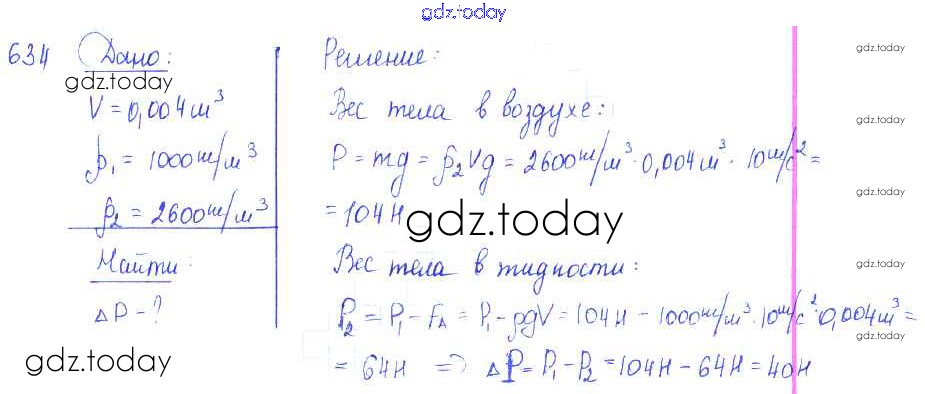 gdz.today
634 Дано:
gdz.today
V = 0,004 м³
ρ₁ = 1000 кг/м³
ρ₂ = 2600 кг/м³
Найти:
ΔP - ?
gdz.today
Решение:
Вес тела в воздухе:
P = mg = ρ₂Vg = 2600 кг/м³ · 0,004 м³ · 10 м/с² =
= 104 Н
gdz.today
Вес тела в жидкости:
P₂ = P₁ - Fᴀ = P₁ - ρgV = 104 Н - 1000 кг/м³ · 10 м/с² · 0,004 м³ =
= 64 Н => ΔP = P₁ - P₂ = 104 Н - 64 Н = 40 Н
gdz.today
gdz.today
gdz.today
gdz.today
gdz.today